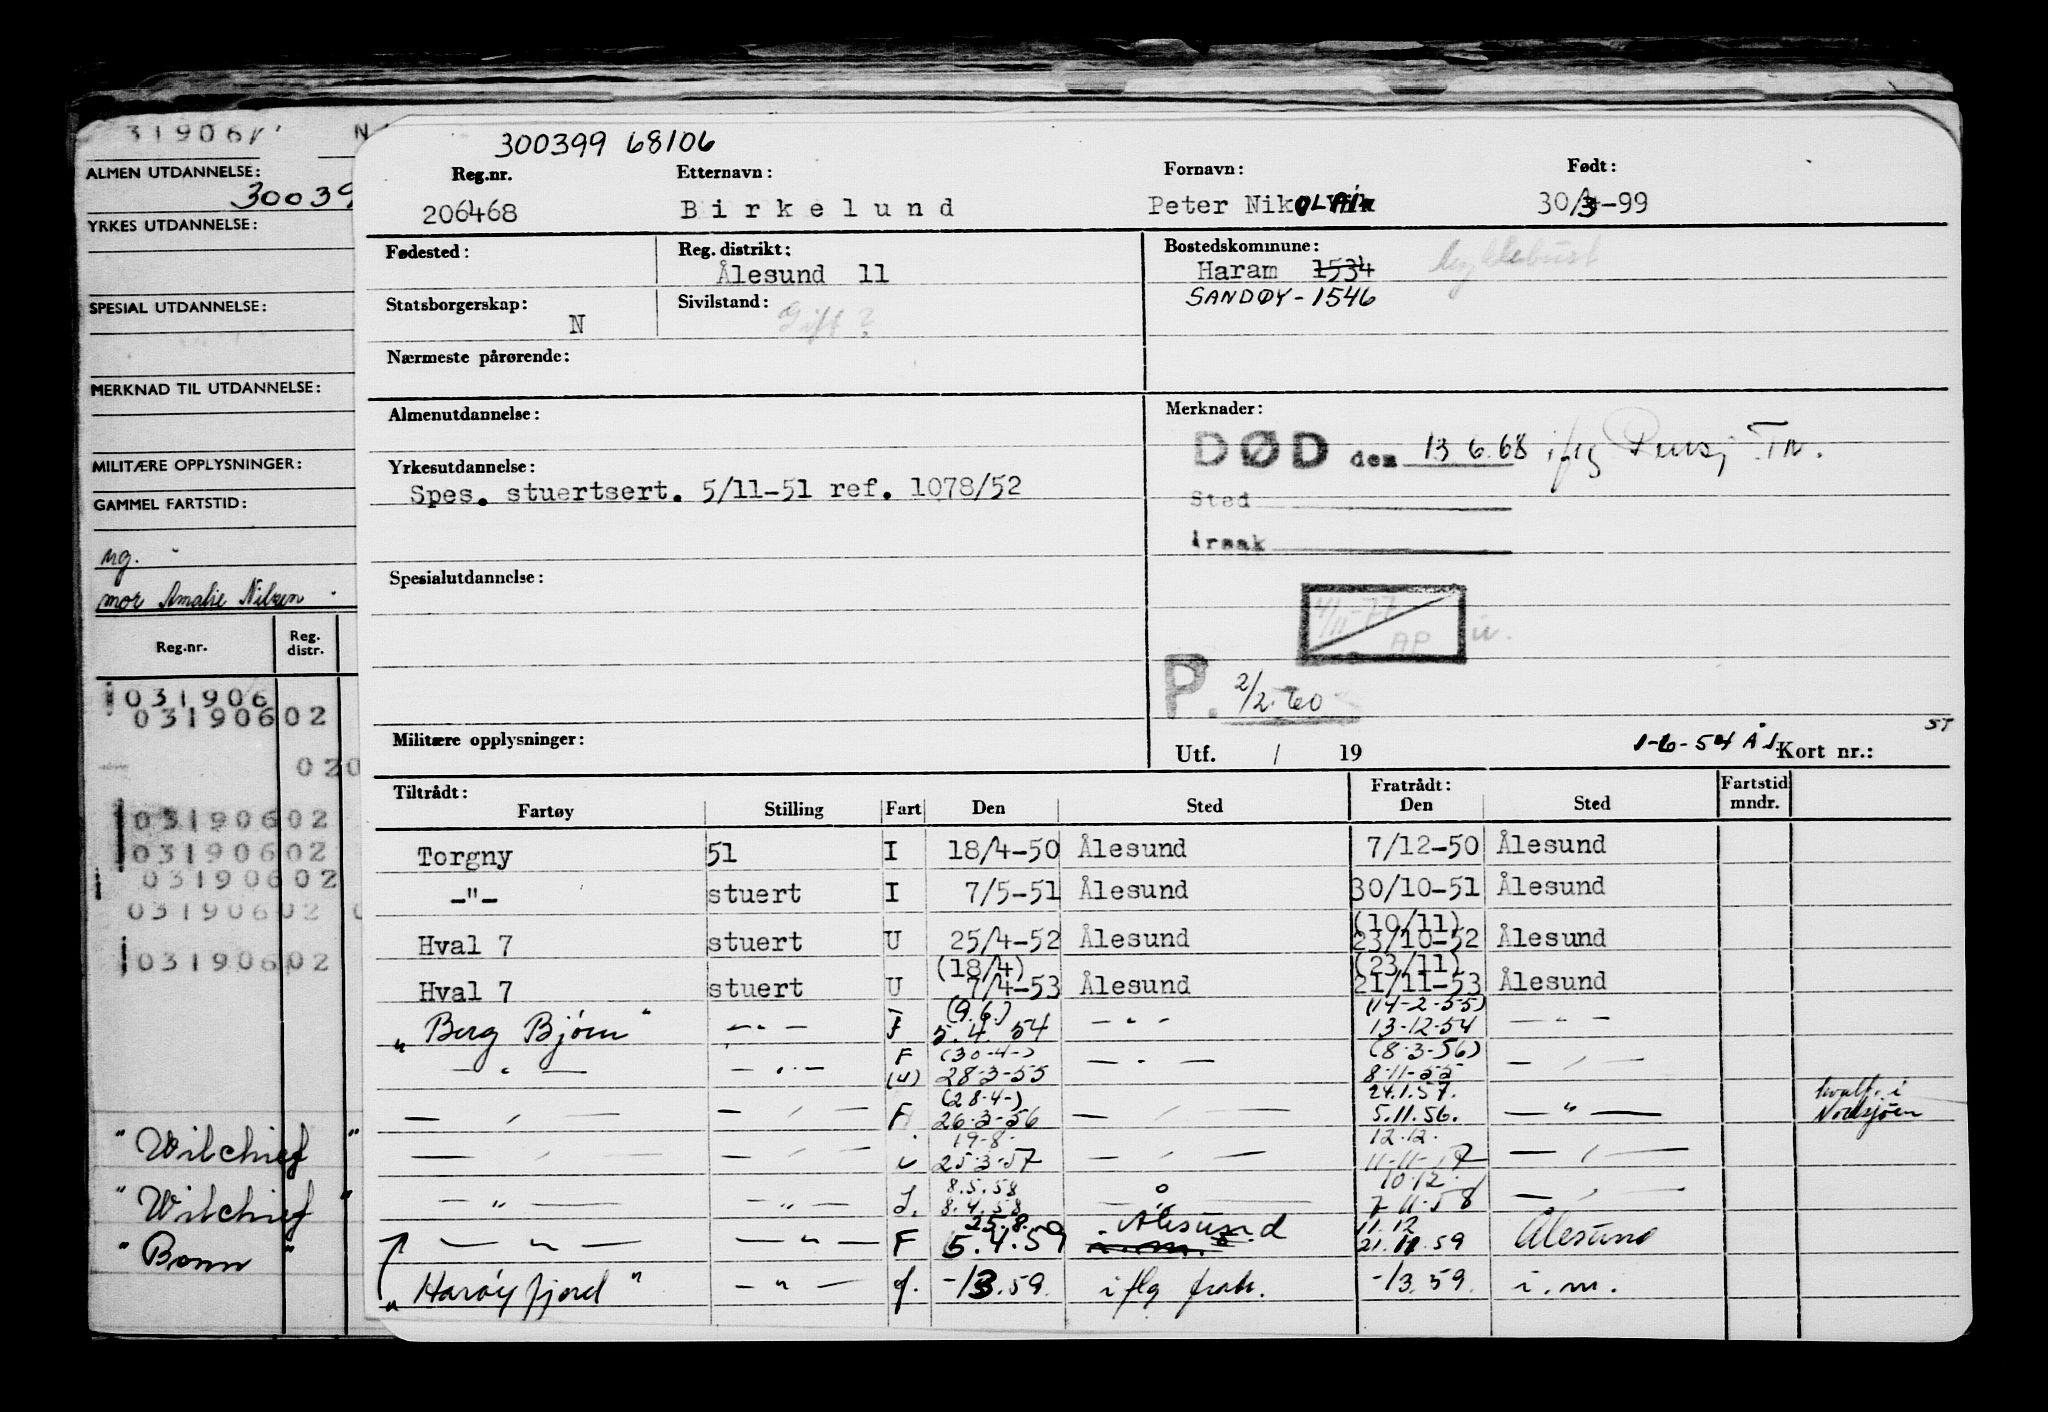 3190611
ALMEN UTDANNELSE:
30039
YRKES UTDANNELSE:
SPESIAL UTDANNELSE:
MERKNAD TIL UTDANNELSE:
MILITÆRE OPPLYSNINGER:
GAMMEL FARTSTID:
ug.
mor Amalie Nilsen
Reg.nr. Reg. distr.
031906
03190602
020
03190602
03190602
03190602
03190602
03190602
"Wilchief"
"Wilchief"
"Bonn"
300399 68106
Reg.nr. Etternavn: Fornavn: Født:
206468 Birkelund Peter Nikolai 30/3-99
Fødested: Reg. distrikt: Bostedskommune:
Ålesund 11 Haram 1534
SANDØY - 1546
Statsborgerskap: Sivilstand:
N Gift ?
Nærmeste pårørende:
Almenutdannelse: Merknader:
DØD den 13 6.68 iflg Pensj Tr.
Yrkesutdannelse:
Spes. stuertsert. 5/11-51 ref. 1078/52
Sted
Årsak
Spesialutdannelse:
11-77
AP u.
P. 2/2.60
Militære opplysninger: Utf. / 19 1-6-54 Ål. Kort nr.: ST
Tiltrådt: Fratrådt: Fartstid
Fartøy Stilling Fart Den Sted Den Sted mndr.
Torgny 51 I 18/4-50 Ålesund 7/12-50 Ålesund
-"- stuert I 7/5-51 Ålesund 30/10-51 Ålesund
(10/11)
Hval 7 stuert U 25/4-52 Ålesund 23/10-52 Ålesund
(18/4) (23/11)
Hval 7 stuert U 7/4-53 Ålesund 21/11-53 Ålesund
(9.6.) (14-2-55)
"Berg Bjørn" -"- F 5.4.54 -"- 13-12-54 -"-
F (30-4-) (8-3-56)
-"- -"- (U) 28-3-55 -"- 8-11-55 -"-
(28-4-) 24.1.57.
-"- -"- F 26-3-56 -"- 5.11.56. -"- kvalf. i Nordsjøen
19-8- 12.12.
-"- -"- U 25-3-57 -"- 11-11-57 -"-
8.5.58 10.12.
-"- -"- 8.4.58 -"- 7-11-58 -"-
25.8. 11.12
-"- -"- F 5.4.59 Ålesund 21.11.59 Ålesund
"Harøyfjord" -"- f. -13.59. iflg frah. -13.59. i.m.